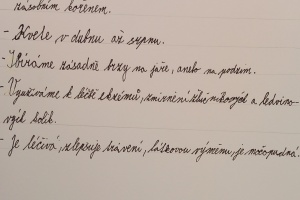 zásobním kořenem.
- Kvete v dubnu až srpnu.
- Sbíráme zásadně brzy na jaře, anebo na podzim.
- Využíváme k léčbě ekzémů, zmírnění žlučníkových a ledvino-
vých bolek.
- Je léčivá, zlepšuje trávení, látkovou výměnu, je močopudná.